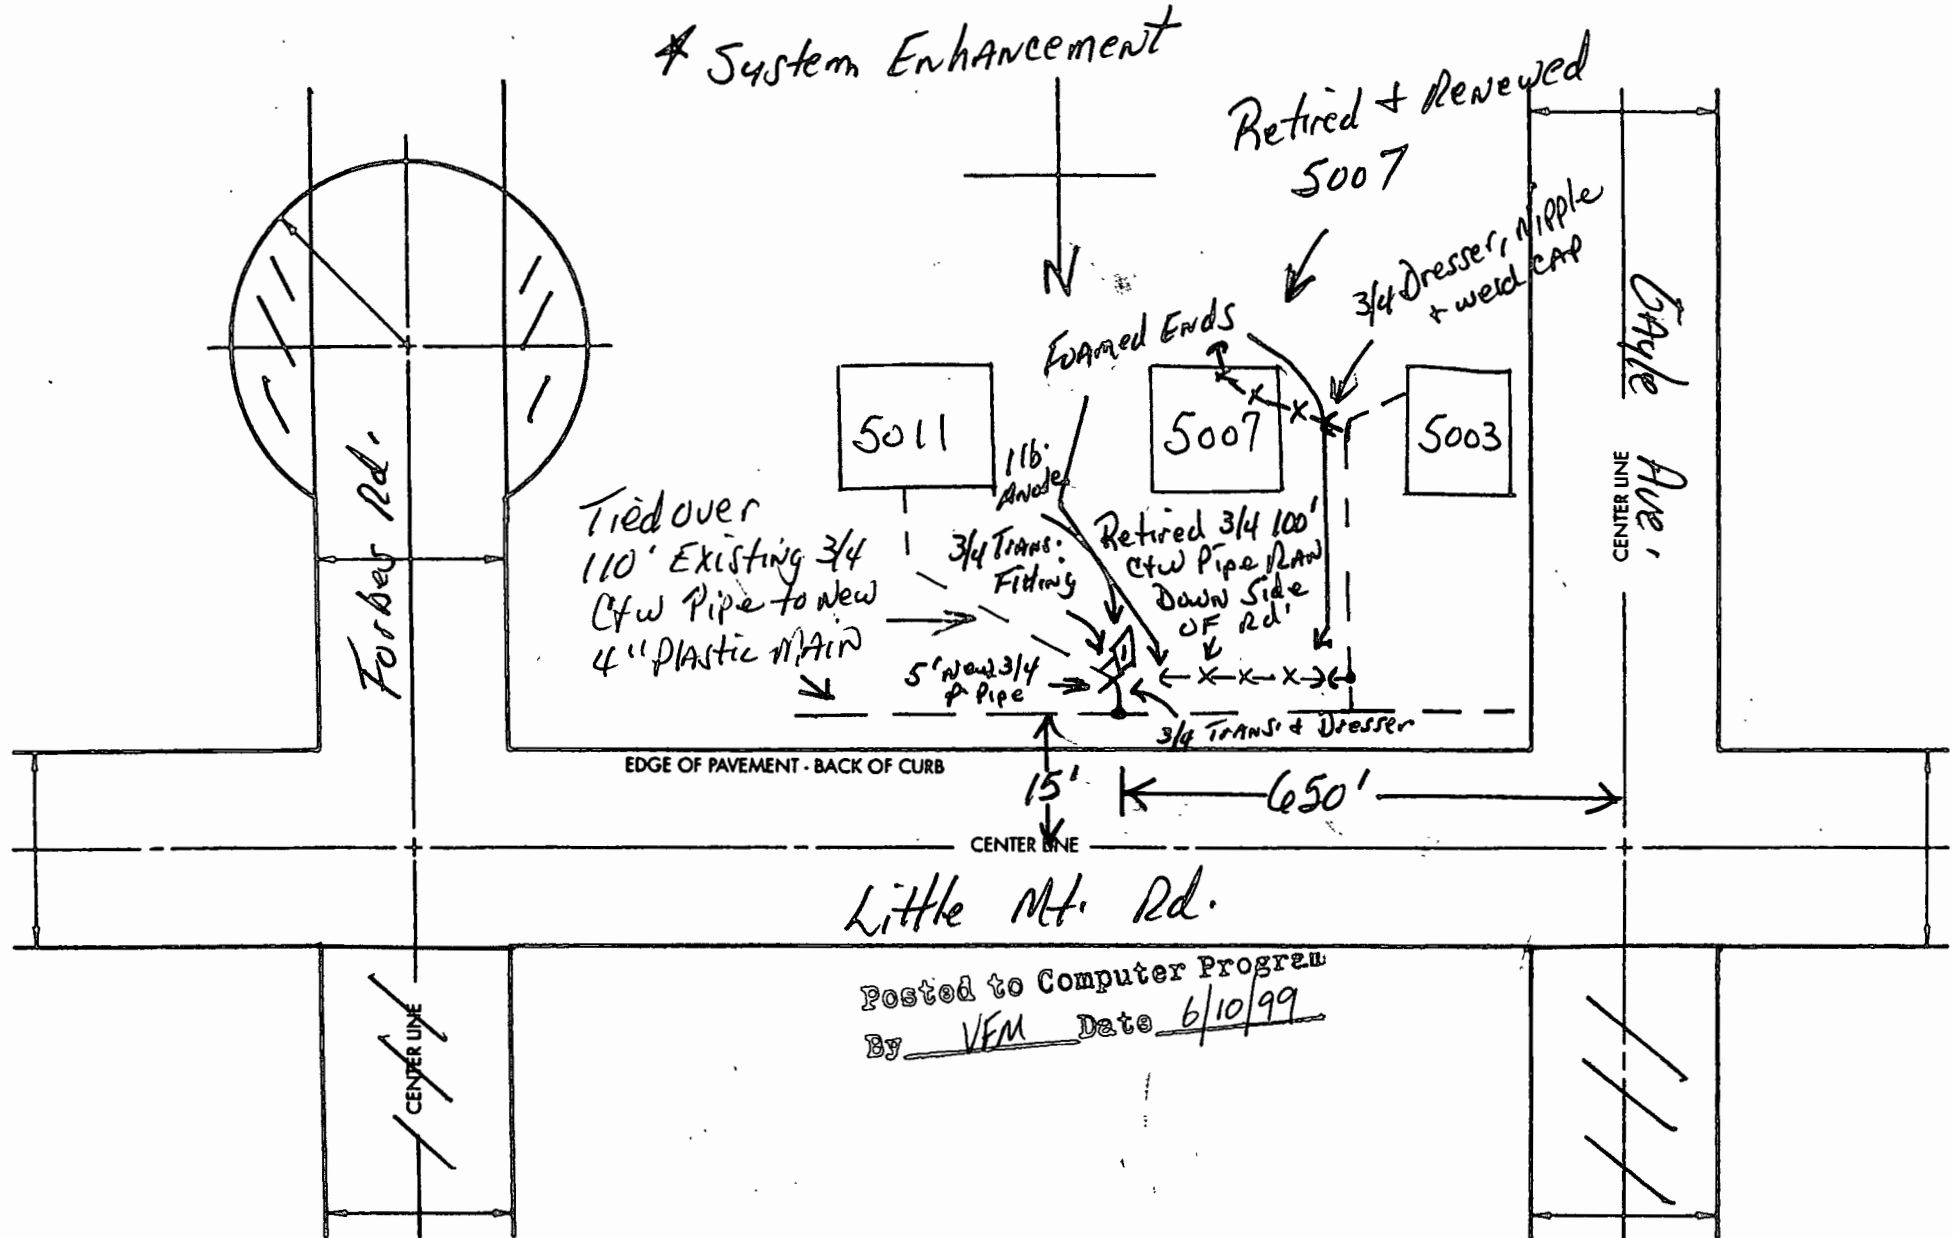 * System Enhancement
Retired + Renewed
5007
3/4 Dresser, Nipple
+ weld CAP
N
Foamed Ends
5011
5007
5003
1 lb.
Anode
Tied over
110' Existing 3/4
C+w Pipe to New
4" Plastic MAIN
3/4 Trans.
Fitting
Retired 3/4 100'
C+w Pipe RAN
Down Side
OF Rd'
5' New 3/4
P Pipe
3/4 Trans. & Dresser
Forbes Rd.
Gayle Ave.
CENTER LINE
EDGE OF PAVEMENT - BACK OF CURB
15'
650'
CENTER LINE
Little Mt. Rd.
Posted to Computer Program
By VFM Date 6/10/99
CENTER LINE